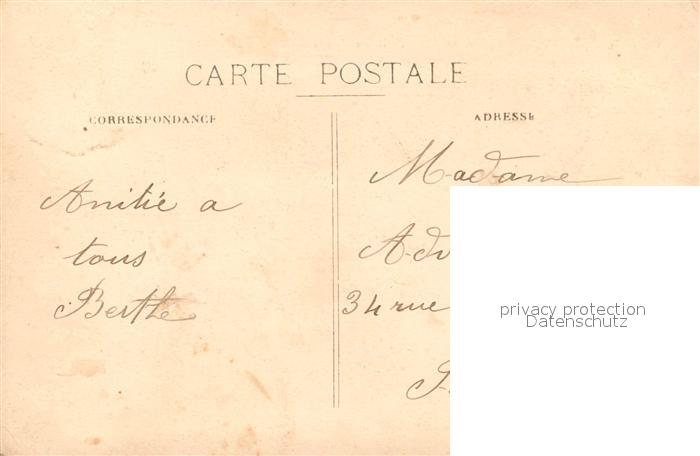 CARTE POSTALE
CORRESPONDANCE
ADRESSE
Amitié a
tous
Berthe
Madame
34 rue
privacy protection
Datenschutz